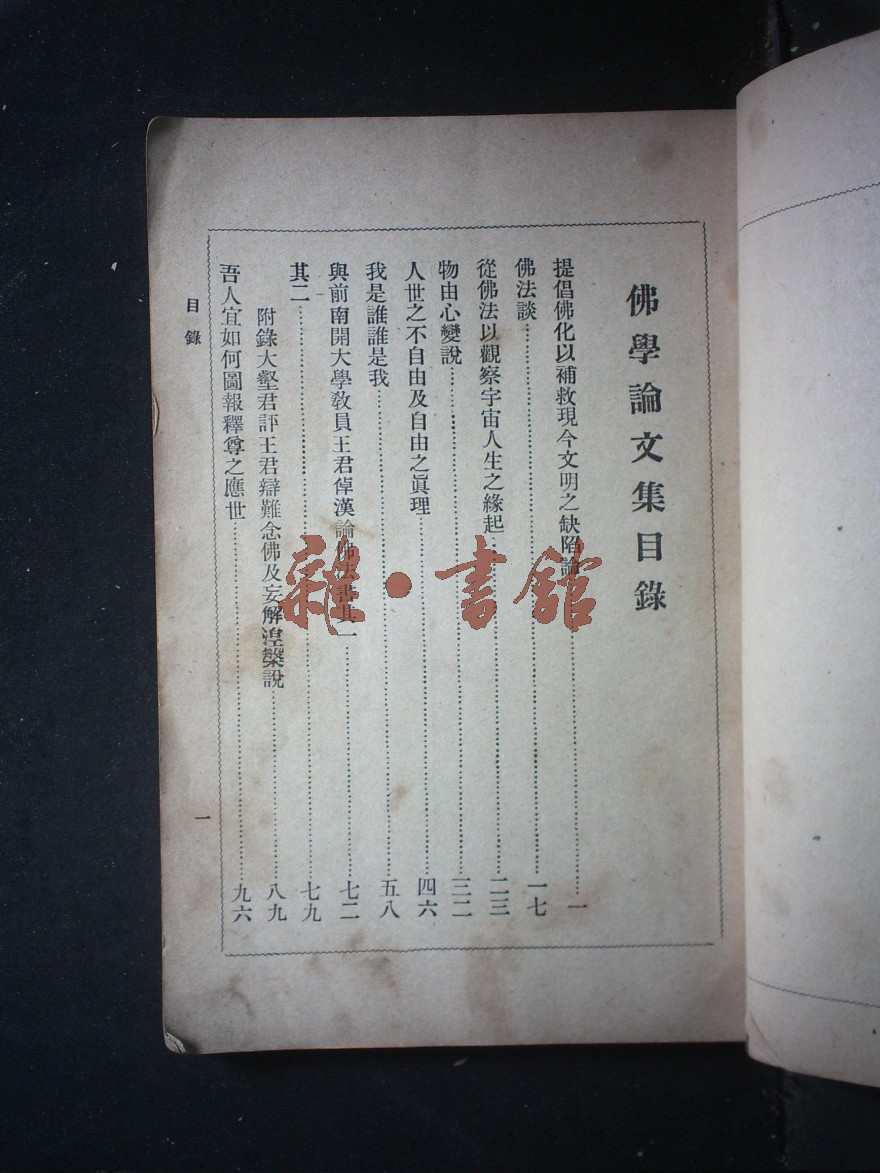 佛學論文集目錄
提倡佛化以補救現今文明之缺陷論……一
佛法談……一七
從佛法以觀察宇宙人生之緣起……二三
物由心變說……三二
人世之不自由及自由之眞理……四六
我是誰誰是我……五八
與前南開大學敎員王君倬漢論佛法書其一……七二
其二……七九
附錄大壑君評王君辯難念佛及妄解湼槃說……八九
吾人宜如何圖報釋尊之應世……九六
目錄
一
雜·書館